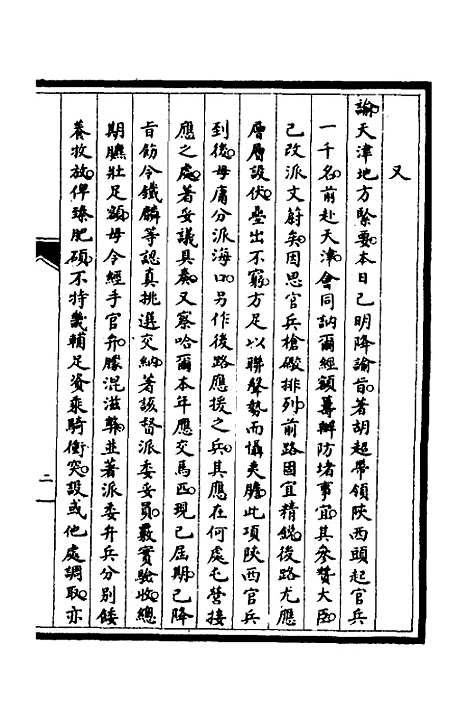 又
諭天津地方緊要本日已明降諭旨著胡超帶領陝西頭起官兵
一千名前赴天津會同訥爾經額籌辦防堵事宜其參贊大臣
已改派文蔚矣因思官兵槍礮排列前路固宜精銳後路尤應
層層設伏疊出不窮方足以聯聲勢而懾夷膽此項陝西官兵
到後毋庸分派海口另作後路應援之兵其應在何處屯營接
應之處著妥議具奏又察哈爾本年應交馬匹現已屆期已降
旨飭令鐵麟等認真挑選交納著該督派委妥員覈實驗收總
期臕壯足額毋令經手官弁朦混滋弊並著派委弁兵分別餧
養牧放俾臻肥碩不特畿輔足資乘騎衝突設或他處調取亦
二